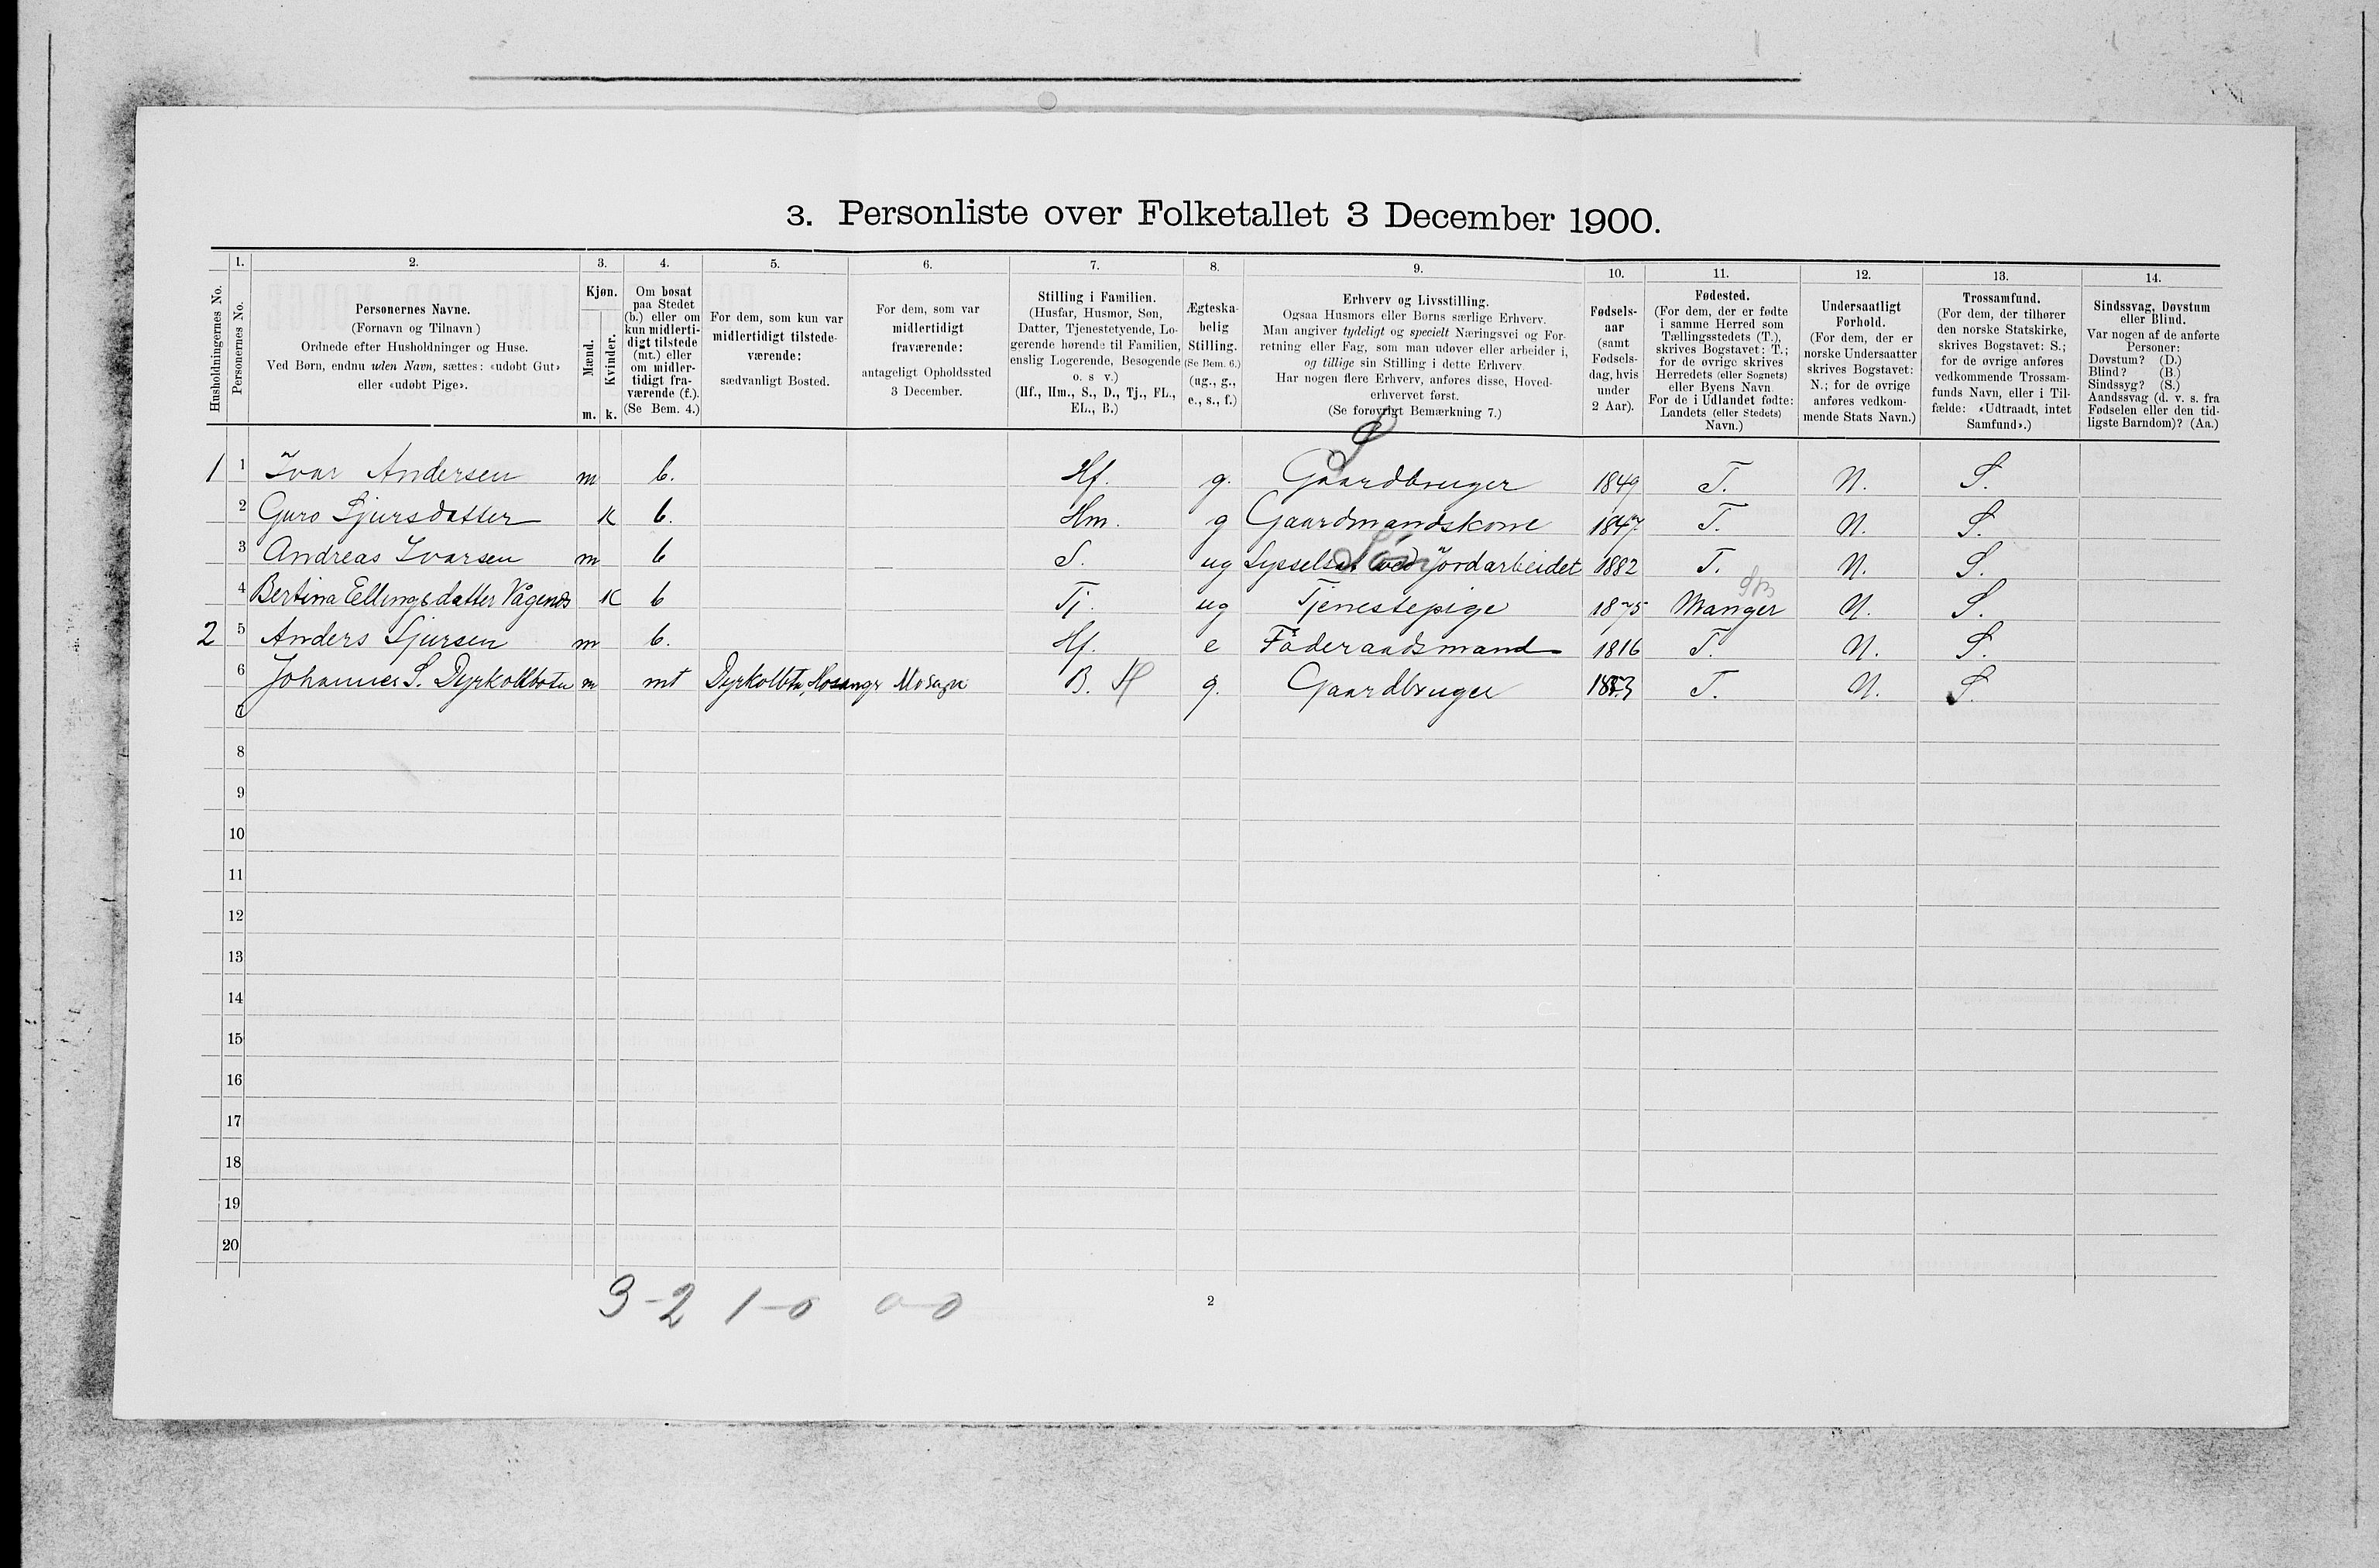 3. Personliste over Folketallet 3 December 1900.
1. 2. 3. 4. 5. 6. 7. 8. 9. 10. 11. 12. 13. 14.
Husholdningernes No.
Personernes No.
Personernes Navne.
(Fornavn og Tilnavn.)
Ordnede efter Husholdninger og Huse.
Ved Børn, endnu uden Navn, sættes: «udøbt Gut»
eller «udøbt Pige».
Kjøn.
Mænd.
Kvinder.
m. k.
Om bosat
paa Stedet
(b.) eller om
kun midlerti-
digt tilstede
(mt.) eller
om midler-
tidigt fra-
værende (f.).
(Se Bem. 4.)
For dem, som kun var
midlertidigt tilstede-
værende:
sædvanligt Bosted.
For dem, som var
midlertidigt
fraværende:
antageligt Opholdssted
3 December.
Stilling i Familien.
(Husfar, Husmor, Søn,
Datter, Tjenestetyende, Lo-
gerende hørende til Familien,
enslig Logerende, Besøgende
o. s v.)
(Hf., Hm., S., D., Tj., FL.,
EL., B.)
Ægteska-
belig
Stilling.
(Se Bem. 6.)
(ug., g.,
e., s., f.)
Erhverv og Livsstilling.
Ogsaa Husmors eller Børns særlige Erhverv.
Man angiver tydeligt og specielt Næringsvei og For-
retning eller Fag, som man udøver eller arbeider i,
og tillige sin Stilling i dette Erhverv.
Har nogen flere Erhverv, anføres disse, Hoved-
erhvervet først.
(Se forøvrigt Bemærkning 7.)
Fødsels-
aar
(samt
Fødsels-
dag, hvis
under
2 Aar).
Fødested.
(For dem, der er fødte
i samme Herred som
Tællingsstedets (T.),
skrives Bogstavet: T.;
for de øvrige skrives
Herredets (eller Sognets)
eller Byens Navn.
For de i Udlandet fødte:
Landets (eller Stedets)
Navn.)
Undersaatligt
Forhold.
(For dem, der er
norske Undersaatter
skrives Bogstavet:
N.; for de øvrige
anføres vedkom-
mende Stats Navn.)
Trossamfund.
(For dem, der tilhører
den norske Statskirke,
skrives Bogstavet: S.;
for de øvrige anføres
vedkommende Trossam-
funds Navn, eller i Til-
fælde: «Udtraadt, intet
Samfund».)
Sindssvag, Døvstum
eller Blind.
Var nogen af de anførte
Personer:
Døvstum? (D.)
Blind? (B.)
Sindssyg? (S.)
Aandssvag (d. v. s. fra
Fødselen eller den tid-
ligste Barndom)? (Aa.)
1 1 Ivar Andersen m b. Hf. g. Gaardbruger 1849 T. N. S.
2 Guro Sjursdatter K b. Hm. g Gaardmandskone 1847 T. N. S.
3 Andreas Ivarsen m b S. ug Sysselsat ved Jordarbeidet 1882 T. N. S.
Søn
4 Bertina Ellingsdatter Vågenes K b Tj. ug Tjenestepige 1875 Manger N. S.
2 5 Anders Sjursen m b. Hf. e Föderaadsmand 1816 T. N. S.
6 Johannes S. Dyrkolbotn m mt Dyrkolbtn, Hosangr B. H g. Gaardbruger 1853 T. N. S.
7
8
9
10
11
12
13
14
15
16
17
18
19
20
3-2 1-0 0-0
2